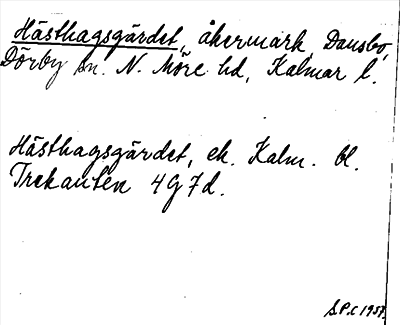 Hästhagsgärdet, åkermark, Dansbo,
Dörby sn. N. Möre hd, Kalmar l.
Hästhagsgärdet, ek. Kalm. bl.
Trekanten 4G7d.
S.P.C 1957.